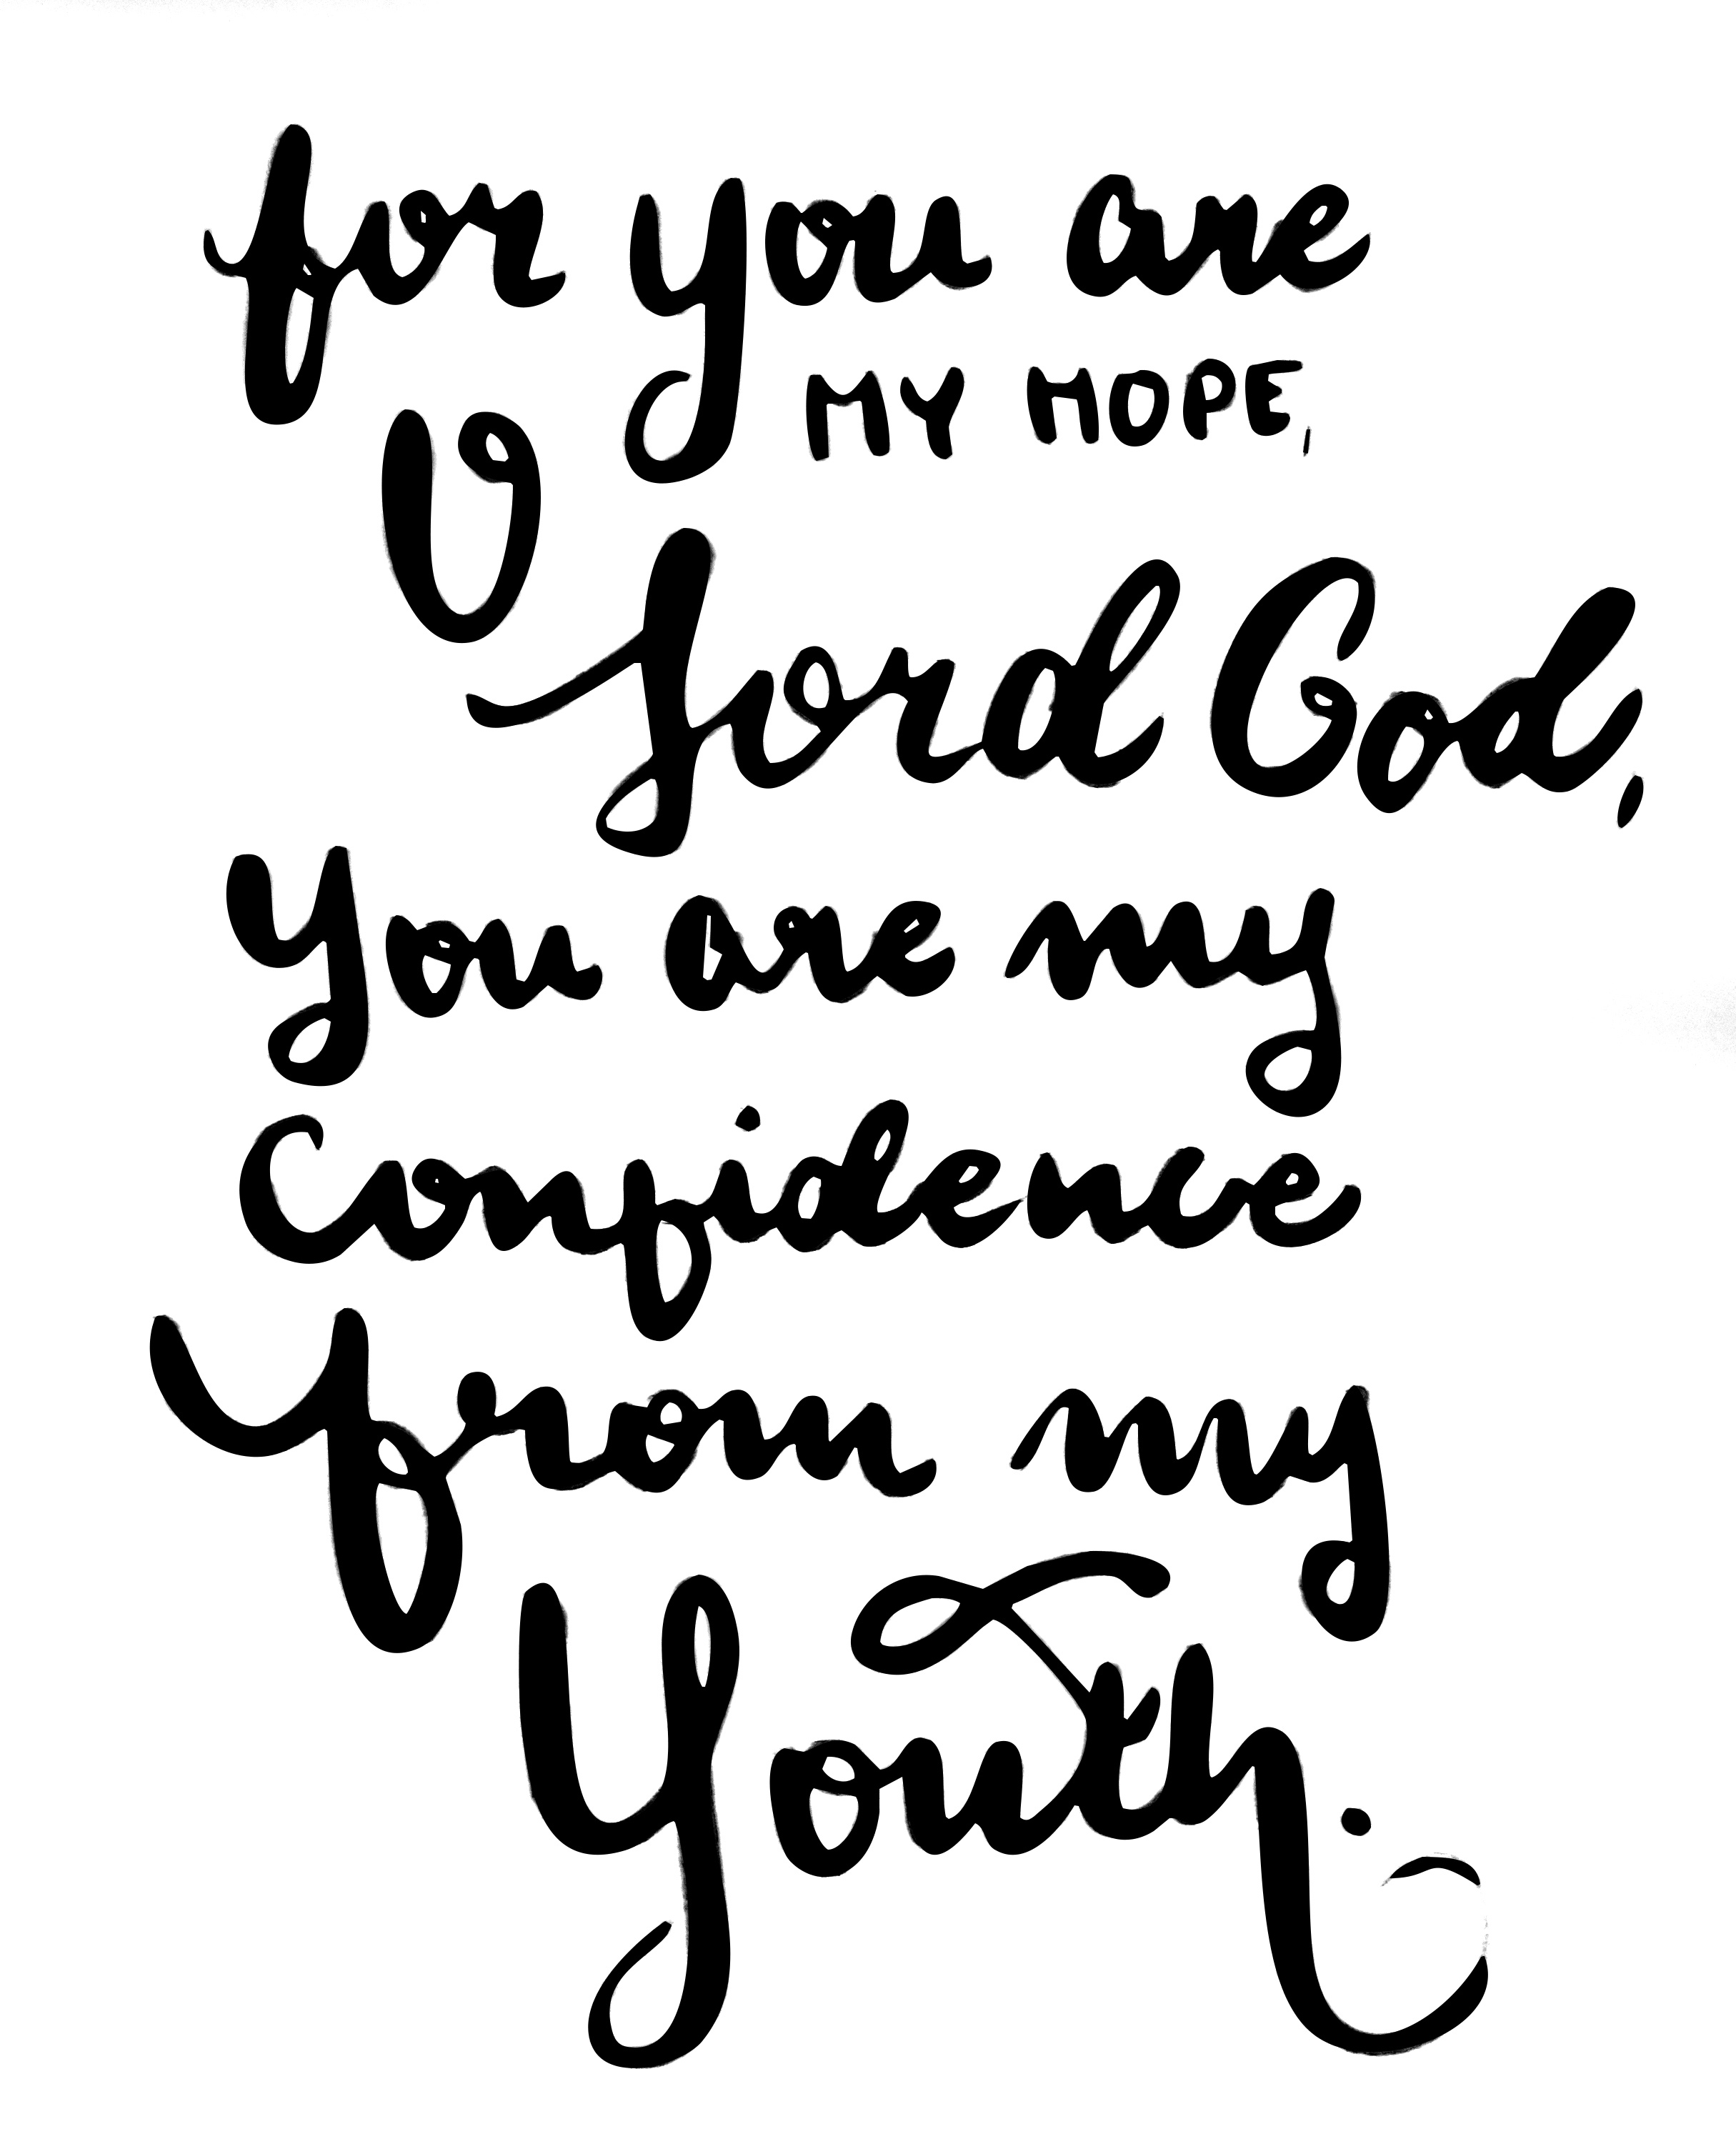 for you are
MY HOPE,
O
Lord God,
You are my
Confidence
from my
Youth.